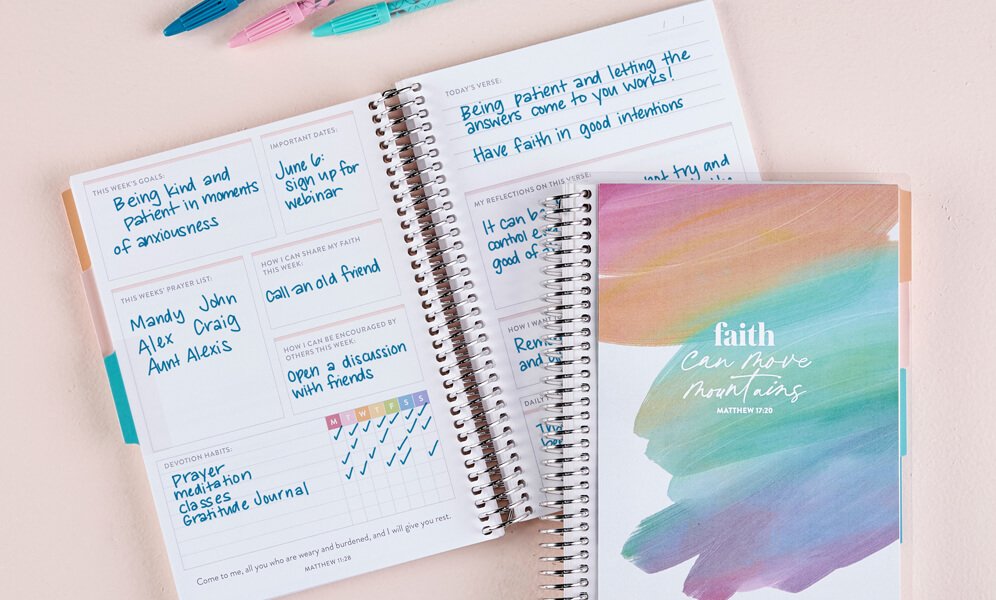 THIS WEEK'S GOALS:
Being kind and
patient in moments
of anxiousness
IMPORTANT DATES:
June 6:
sign up for
webinar
THIS WEEKS' PRAYER LIST:
Mandy John
Alex Craig
Aunt Alexis
HOW I CAN SHARE MY FAITH
THIS WEEK:
Call an old friend
HOW I CAN BE ENCOURAGED BY
OTHERS THIS WEEK:
Open a discussion
with friends
M T W T F S S
DEVOTION HABITS:
Prayer
meditation
classes
Gratitude Journal
Come to me, all you who are weary and burdened, and I will give you rest.
MATTHEW 11:28
TODAY'S VERSE:
Being patient and letting the
answers come to you works!
Have faith in good intentions
MY REFLECTIONS ON THIS VERSE:
not try and
It can
control
good of
HOW I WANT
and
DAILY
faith
can move
mountains
MATTHEW 17:20